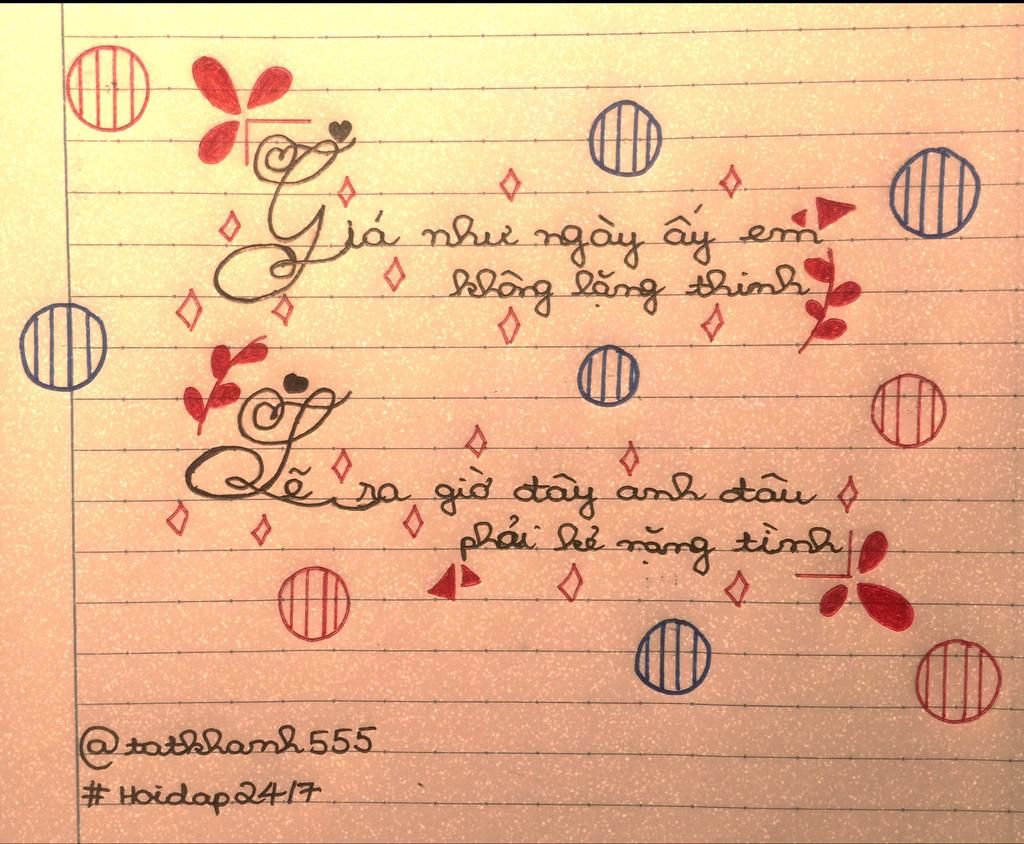 Giá như ngày ấy em
không lặng thinh
Lẽ ra giờ đây anh đâu
phải kẻ nặng tình
@tatkhanh555
#Hoidap24/7